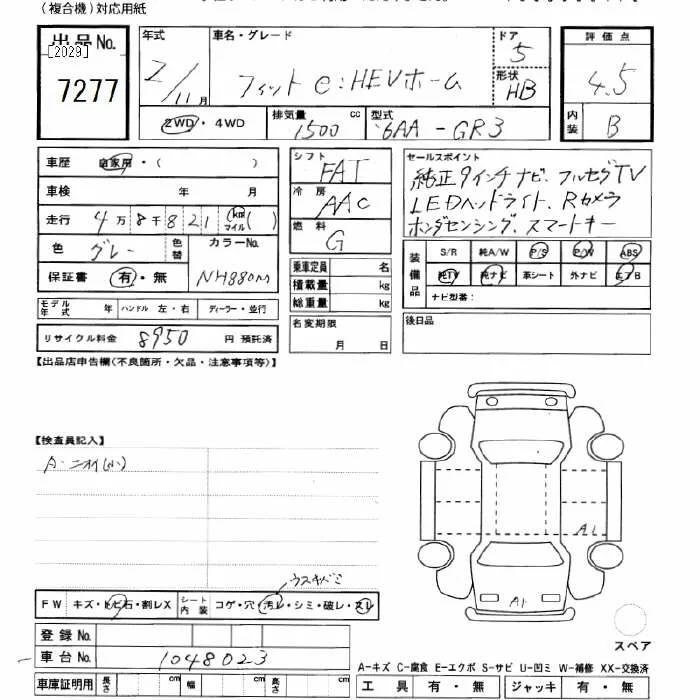 (複合機)対応用紙
出品No.
[2029]
7277
年式
2/11月
車名・グレード
フィット e:HEVホーム
ドア
5
形状
HB
評価点
4.5
内装
B
2WD・4WD
排気量
1500 cc
型式
6AA-GR3
車歴 自家用・( )
車検 年 月
走行 4万8千821 (km マイル)( )
色 グレー 色替 カラーNo. NH880m
保証書 有・無
モデル年式 年 ハンドル 左・右 ディーラー・並行
リサイクル料金 8950 円 預託済
シフト
FAT
冷房
AAC
燃料
G
乗車定員 名
積載量 kg
総重量 kg
名変期限
月 日
セールスポイント
純正9インチナビ、フルセグTV
LEDヘッドライト、Rカメラ
ホンダセンシング、スマートキー
装備品
S/R 純A/W P/S P/W ABS
純TV 純ナビ 革シート 外ナビ エアB
ナビ型番:
後日品
【出品店申告欄(不良箇所・欠品・注意事項等)】
【検査員記入】
A・ニオイ(小)
A1
A1
ウスキバミ
FW キズ・トビ石・割レX シート内装 コゲ・穴・汚レ・シミ・破レ・スレ
登録No.
車台No. 1048023
車庫証明用 長さ cm 幅 cm 高さ cm
スペア
A-キズ C-腐食 E-エクボ S-サビ U-凹ミ W-補修 XX-交換済
工具 有・無 ジャッキ 有・無